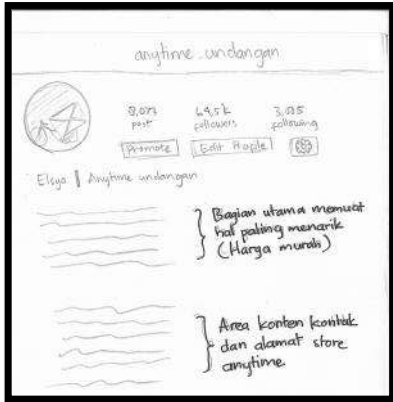 anytime.undangan
post followers following
Promote Edit Profile
Elsya | Anytime undangan
Bagian utama memuat
hal paling menarik
(Harga murah)
Area konten kontak
dan alamat store
anytime.